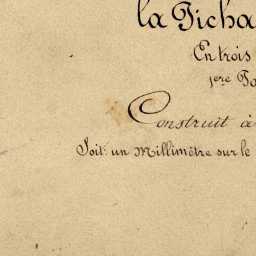 la Picha
En trois
1ere
Construit à
Soit: un Millimètre sur le